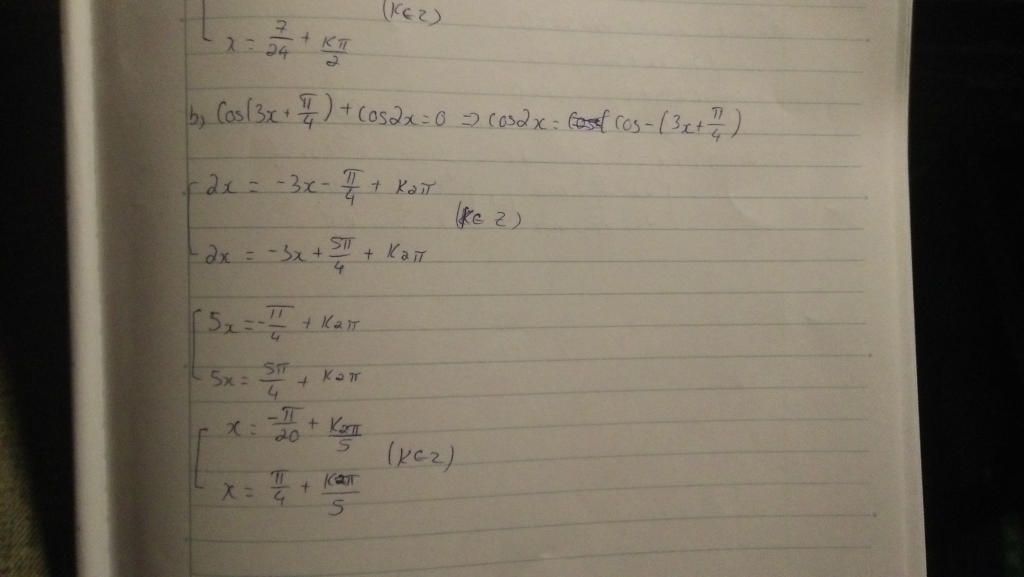 (K∈Z)
x = 7/24 + Kπ/2
b, Cos(3x + π/4) + Cos2x = 0 => Cos2x = Cos-(3x + π/4)
2x = -3x - π/4 + K2π
(K∈Z)
2x = -3x + 5π/4 + K2π
5x = -π/4 + K2π
5x = 5π/4 + K2π
x = -π/20 + K2π/5
(K∈Z)
x = π/4 + K2π/5